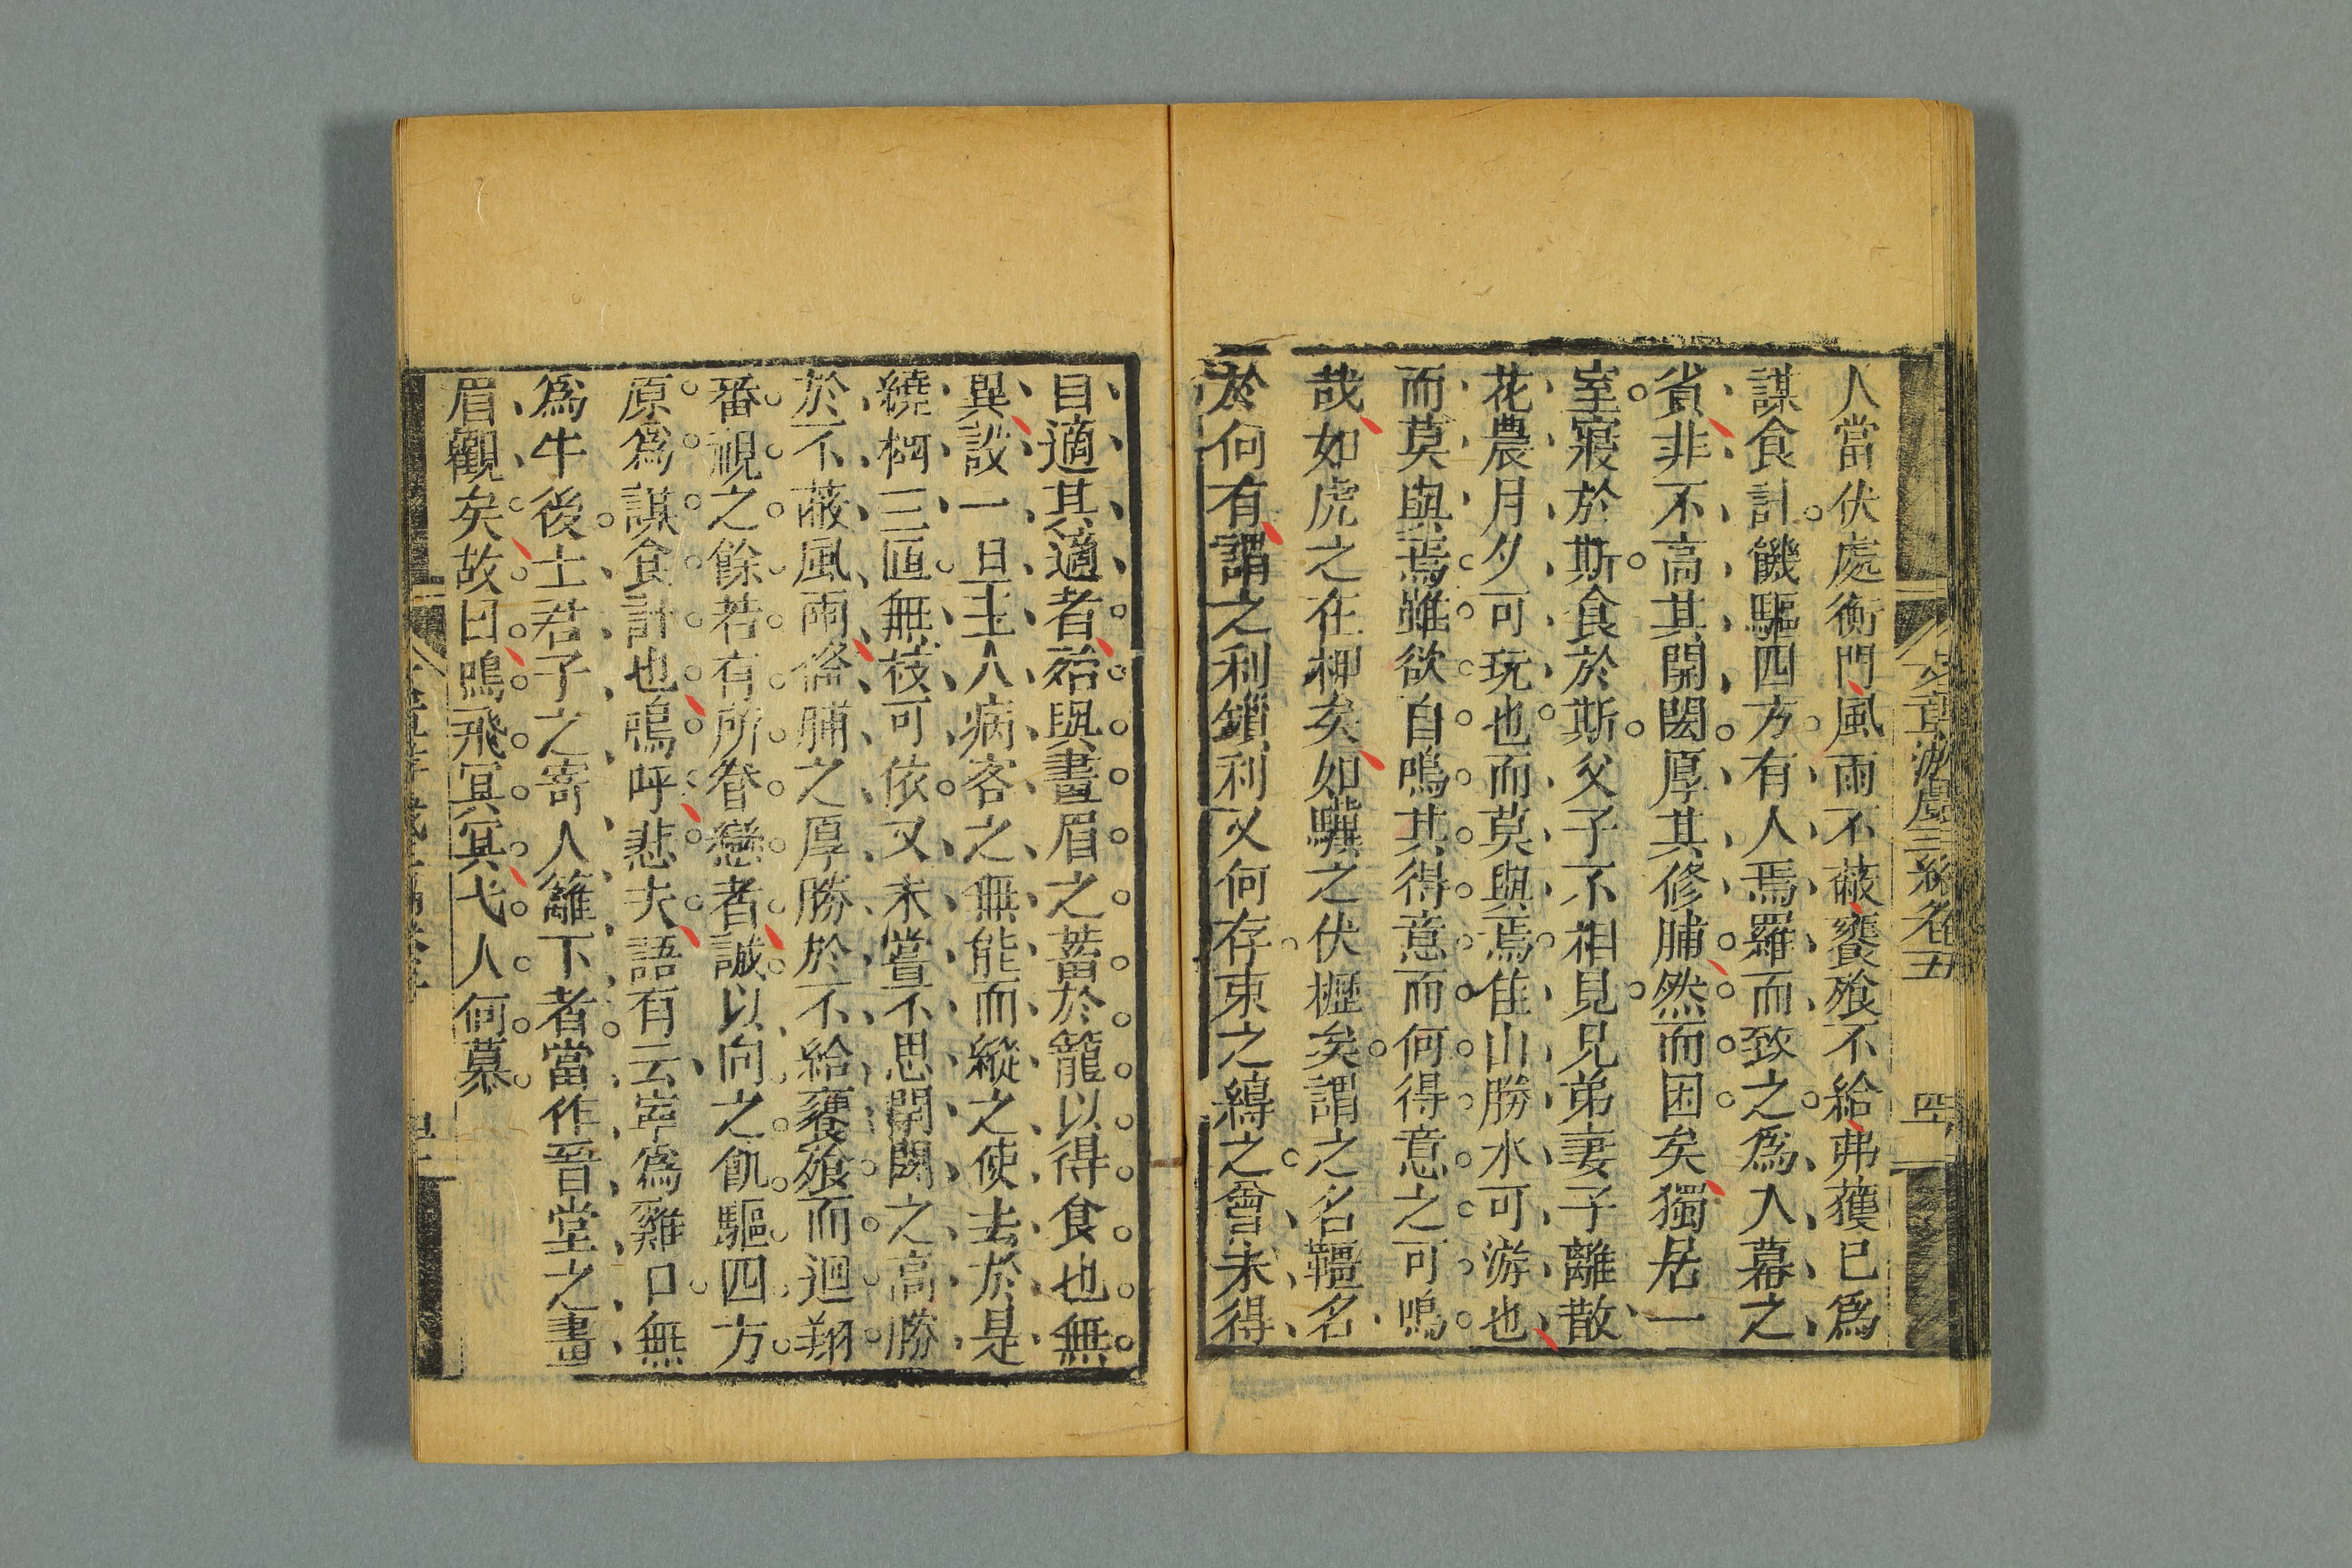 人當伏處衡門風雨不蔽饔飧不給弗獲已爲
謀食計饑驅四方有人焉羅而致之爲入幕之
賓非不高其閈閎厚其修脯然而困矣獨居一
室寢於斯食於斯父子不相見兄弟妻子離散
花農月夕可玩也而莫與焉佳山勝水可游也
而莫與焉雖欲自鳴其得意而何得意之可鳴
哉如虎之在柙矣如驥之伏櫪矣謂之名韁名
於何有謂之利鎖利又何存束之縛之曾未得
自適其適者殆與畫眉之蓄於籠以得食也無
異設一旦主人病客之無能而縱之使去於是
繞樹三匝無枝可依又未嘗不思閈閎之高勝
於不蔽風雨脩脯之厚勝於不給饔飧而迴翔
審視之餘若有所眷戀者誠以向之飢驅四方
原爲謀食計也嗚呼悲夫語有云寧爲雞口無
爲牛後士君子之寄人籬下者當作晉堂之畫
眉觀矣故曰鴻飛冥冥弋人何慕